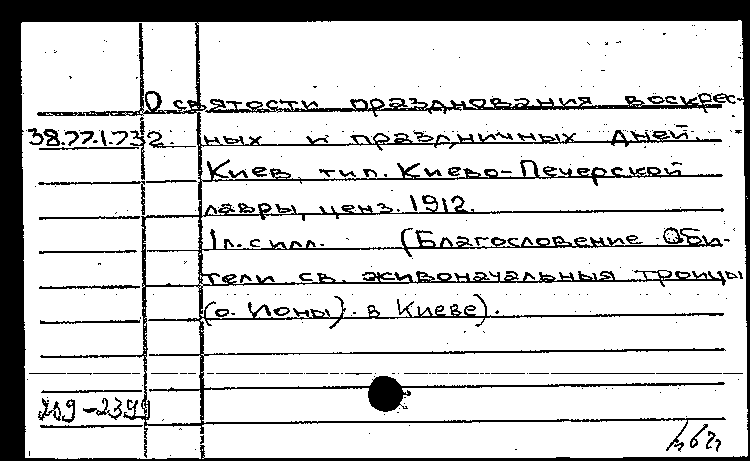 О святости празднования воскрес-
38.77.1.732. ных и праздничных дней.
Киев, тип. Киево-Печерской
лавры, ценз. 1912.
1л. с илл. (Благословение Оби-
тели св. живоначальныя троицы
(о. Ионы). в Киеве).